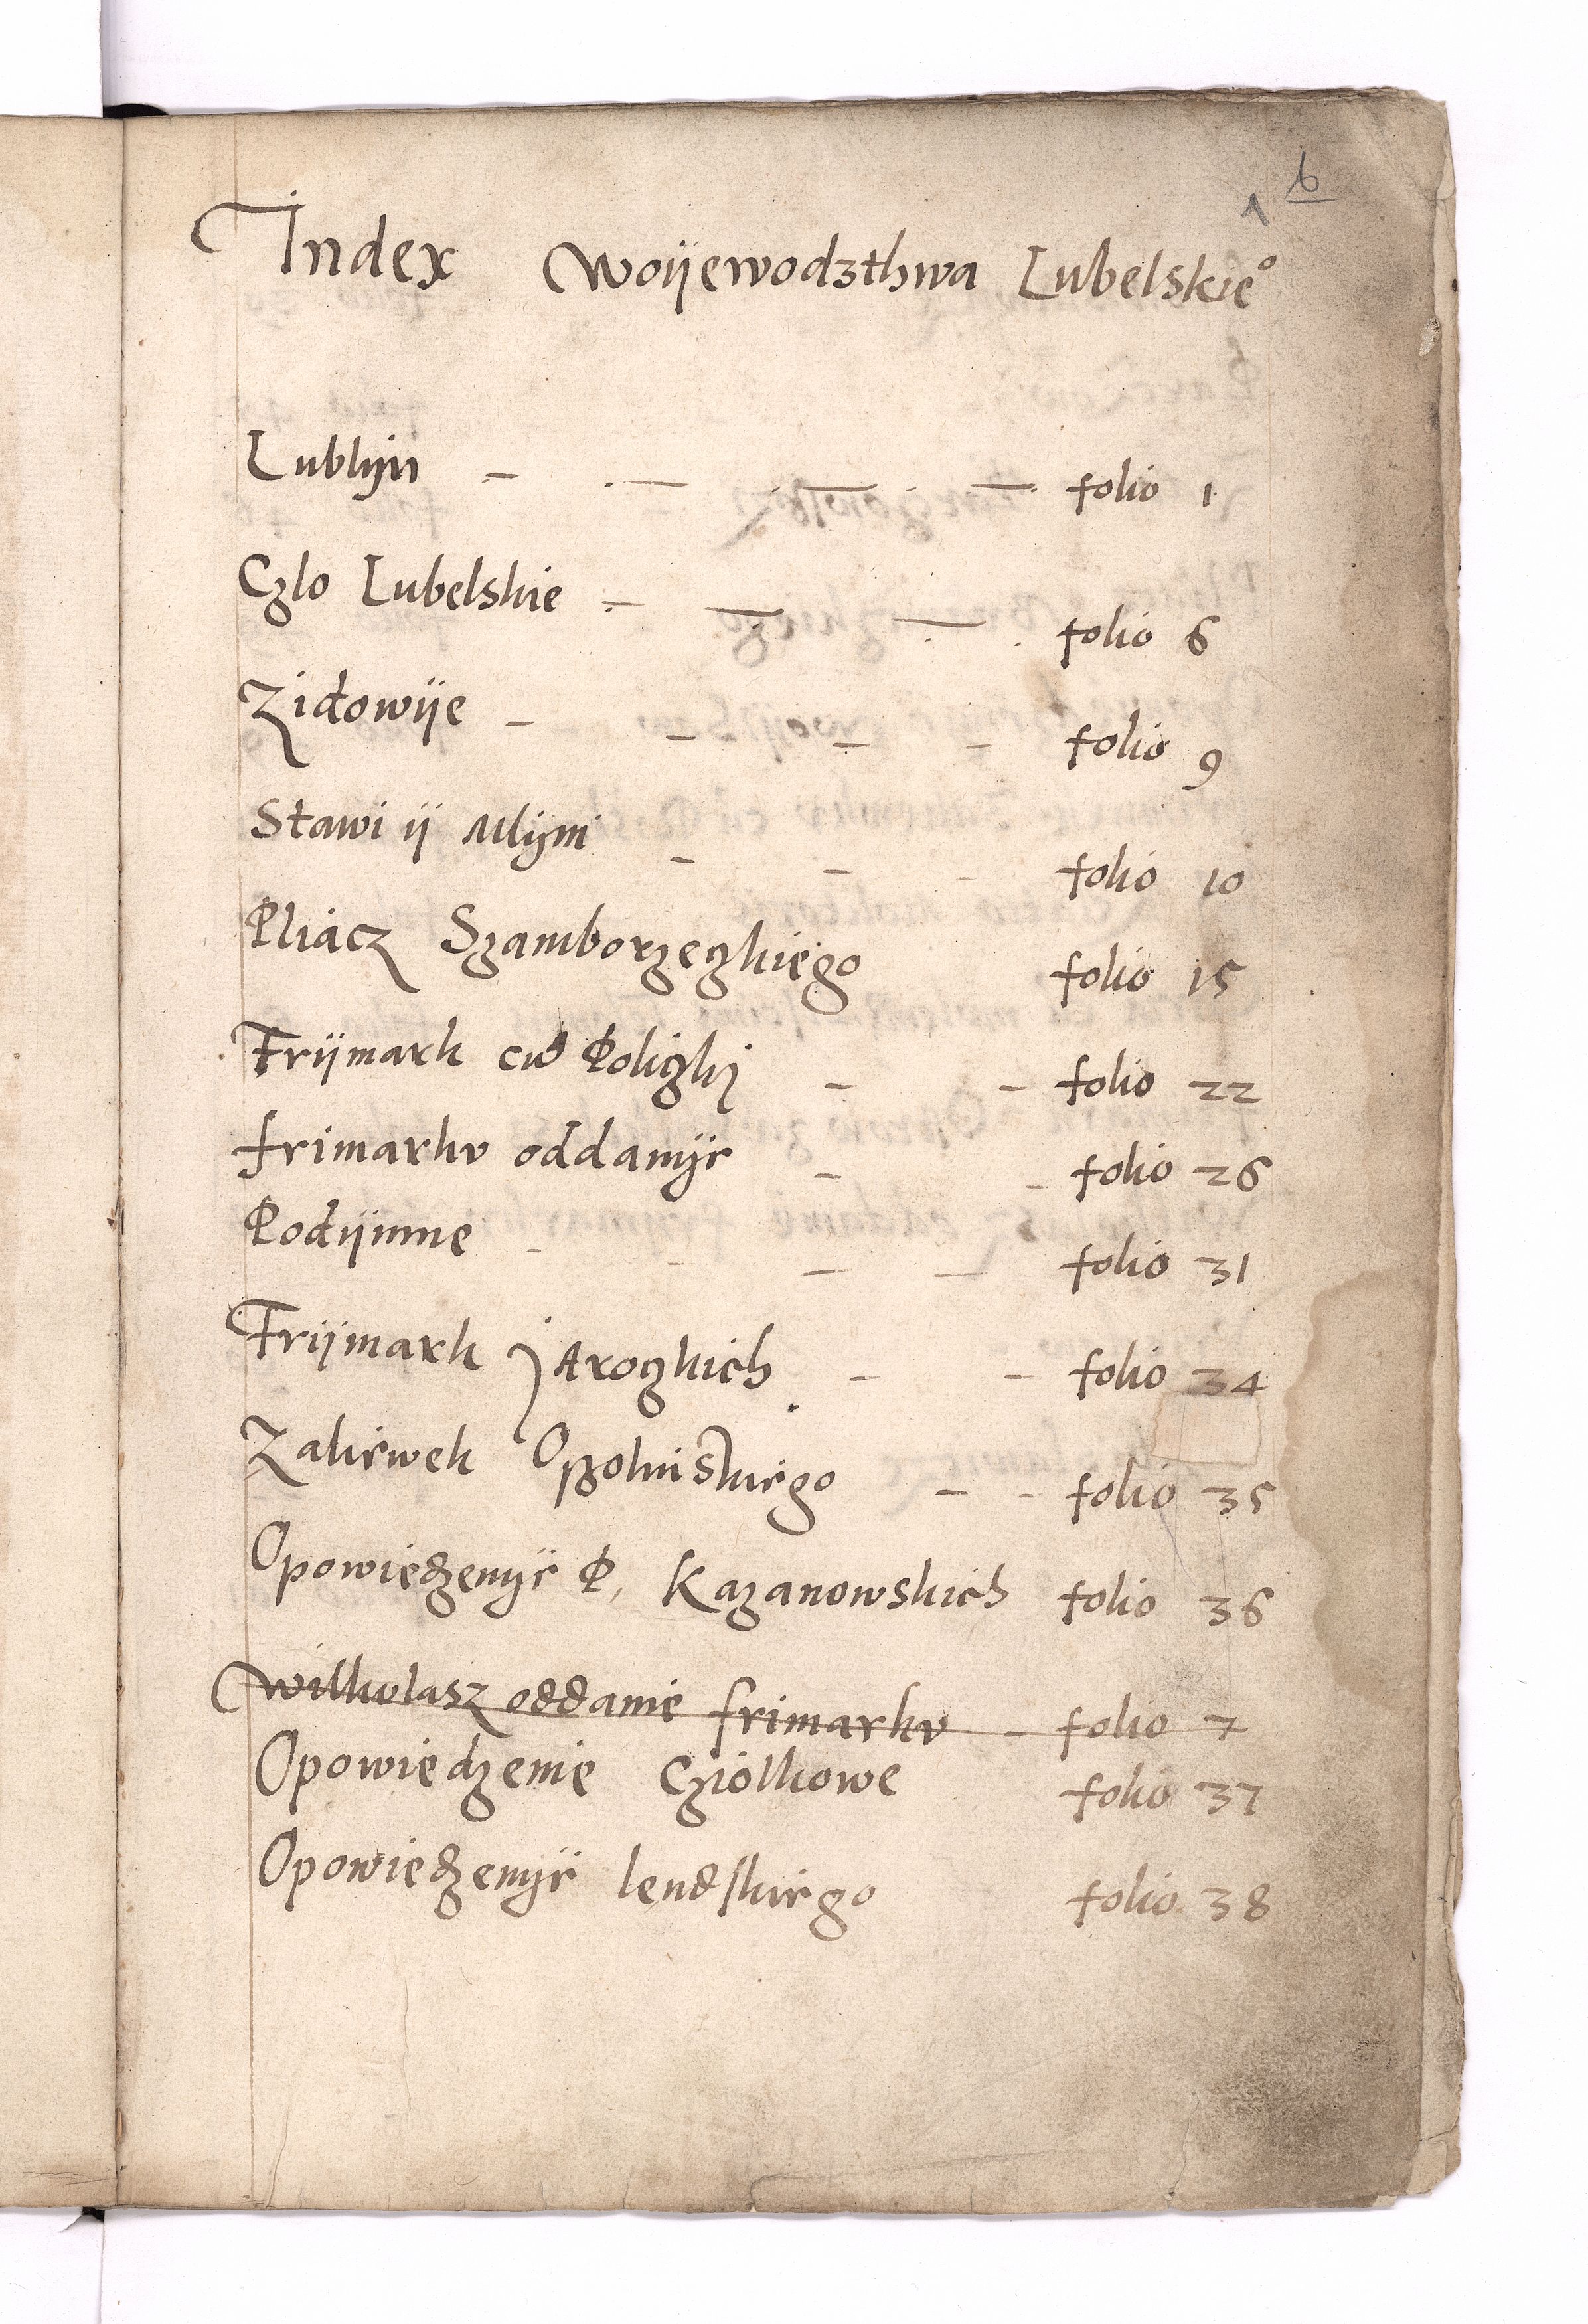 6
1
Index Woijewodzthwa Lubelskie°
Lublijn folio 1
Czlo Lubelskie folio 6
Zidowije folio 9
Stawi ij Mlijni folio 10
Pliacz Szamborzeczkiego folio 15
Frijmark cum Policzki folio 22
frimarku oddanije folio 26
Podijmne folio 31
Frijmark Jaroczkich folio 34
Zakrwek folio 35
Opowiedzenije P. Kazanowskich folio 36
Wilkolasz oddanie frimarku folio 7
Opowiedzenie Cziolkowe folio 37
Opowiedzenije lendskiego folio 38